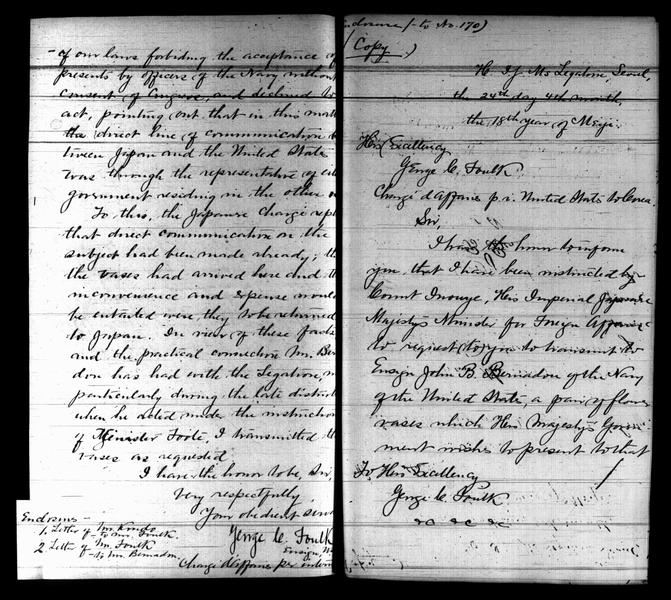 of our laws forbiding the acceptance of
presents by officers of the Navy without
consent of Congress, and declined to
act, pointing out that in this mat
the direct line of communication b
tween Japan and the United States
was through the representative of
government residing in the other
To this, the Japanese Chargé repl
that direct communication on the
subject had been made already; th
the vases had arrived here and th
inconvenience and expense would
be entailed were they to be returned
to Japan. In view of these facts
and the practical connection Mr. Ber
don has had with the Legation,
particularly during the late disturb
when he acted under the instruction
of Minister Foote, I transmitted th
vases as requested
I have the honor to be, Sir,
Very respectfully,
Your obedient serv
George C. Foulk
Ensign, N
Chargé d'Affaires per interim
Enclosures -
1. Letter of Mr. Kondo
- to Mr. Foulk.
2 Letter of Mr. Foulk
- to Mr. Bernadou
nclosure 1 to No. 170)
(Copy.)
H. I. J. Ms Legation, Seoul,
the 24th day 4th month,
the 18th year of Meiji.
His Excellency
George C. Foulk
Chargé d'Affaires p. i. United States to Corea.
Sir,
I have the honor to inform
you that I have been instructed by
Count Inouye, His Imperial Japanese
Majesty's Minister for Foreign Affairs
to request to you to transmit to
Ensign John B. Bernadou of the Navy
of the United States, a pair of flower
vases which His Majesty's Govern
ment wishes to present to that
To His Excellency
George C. Foulk